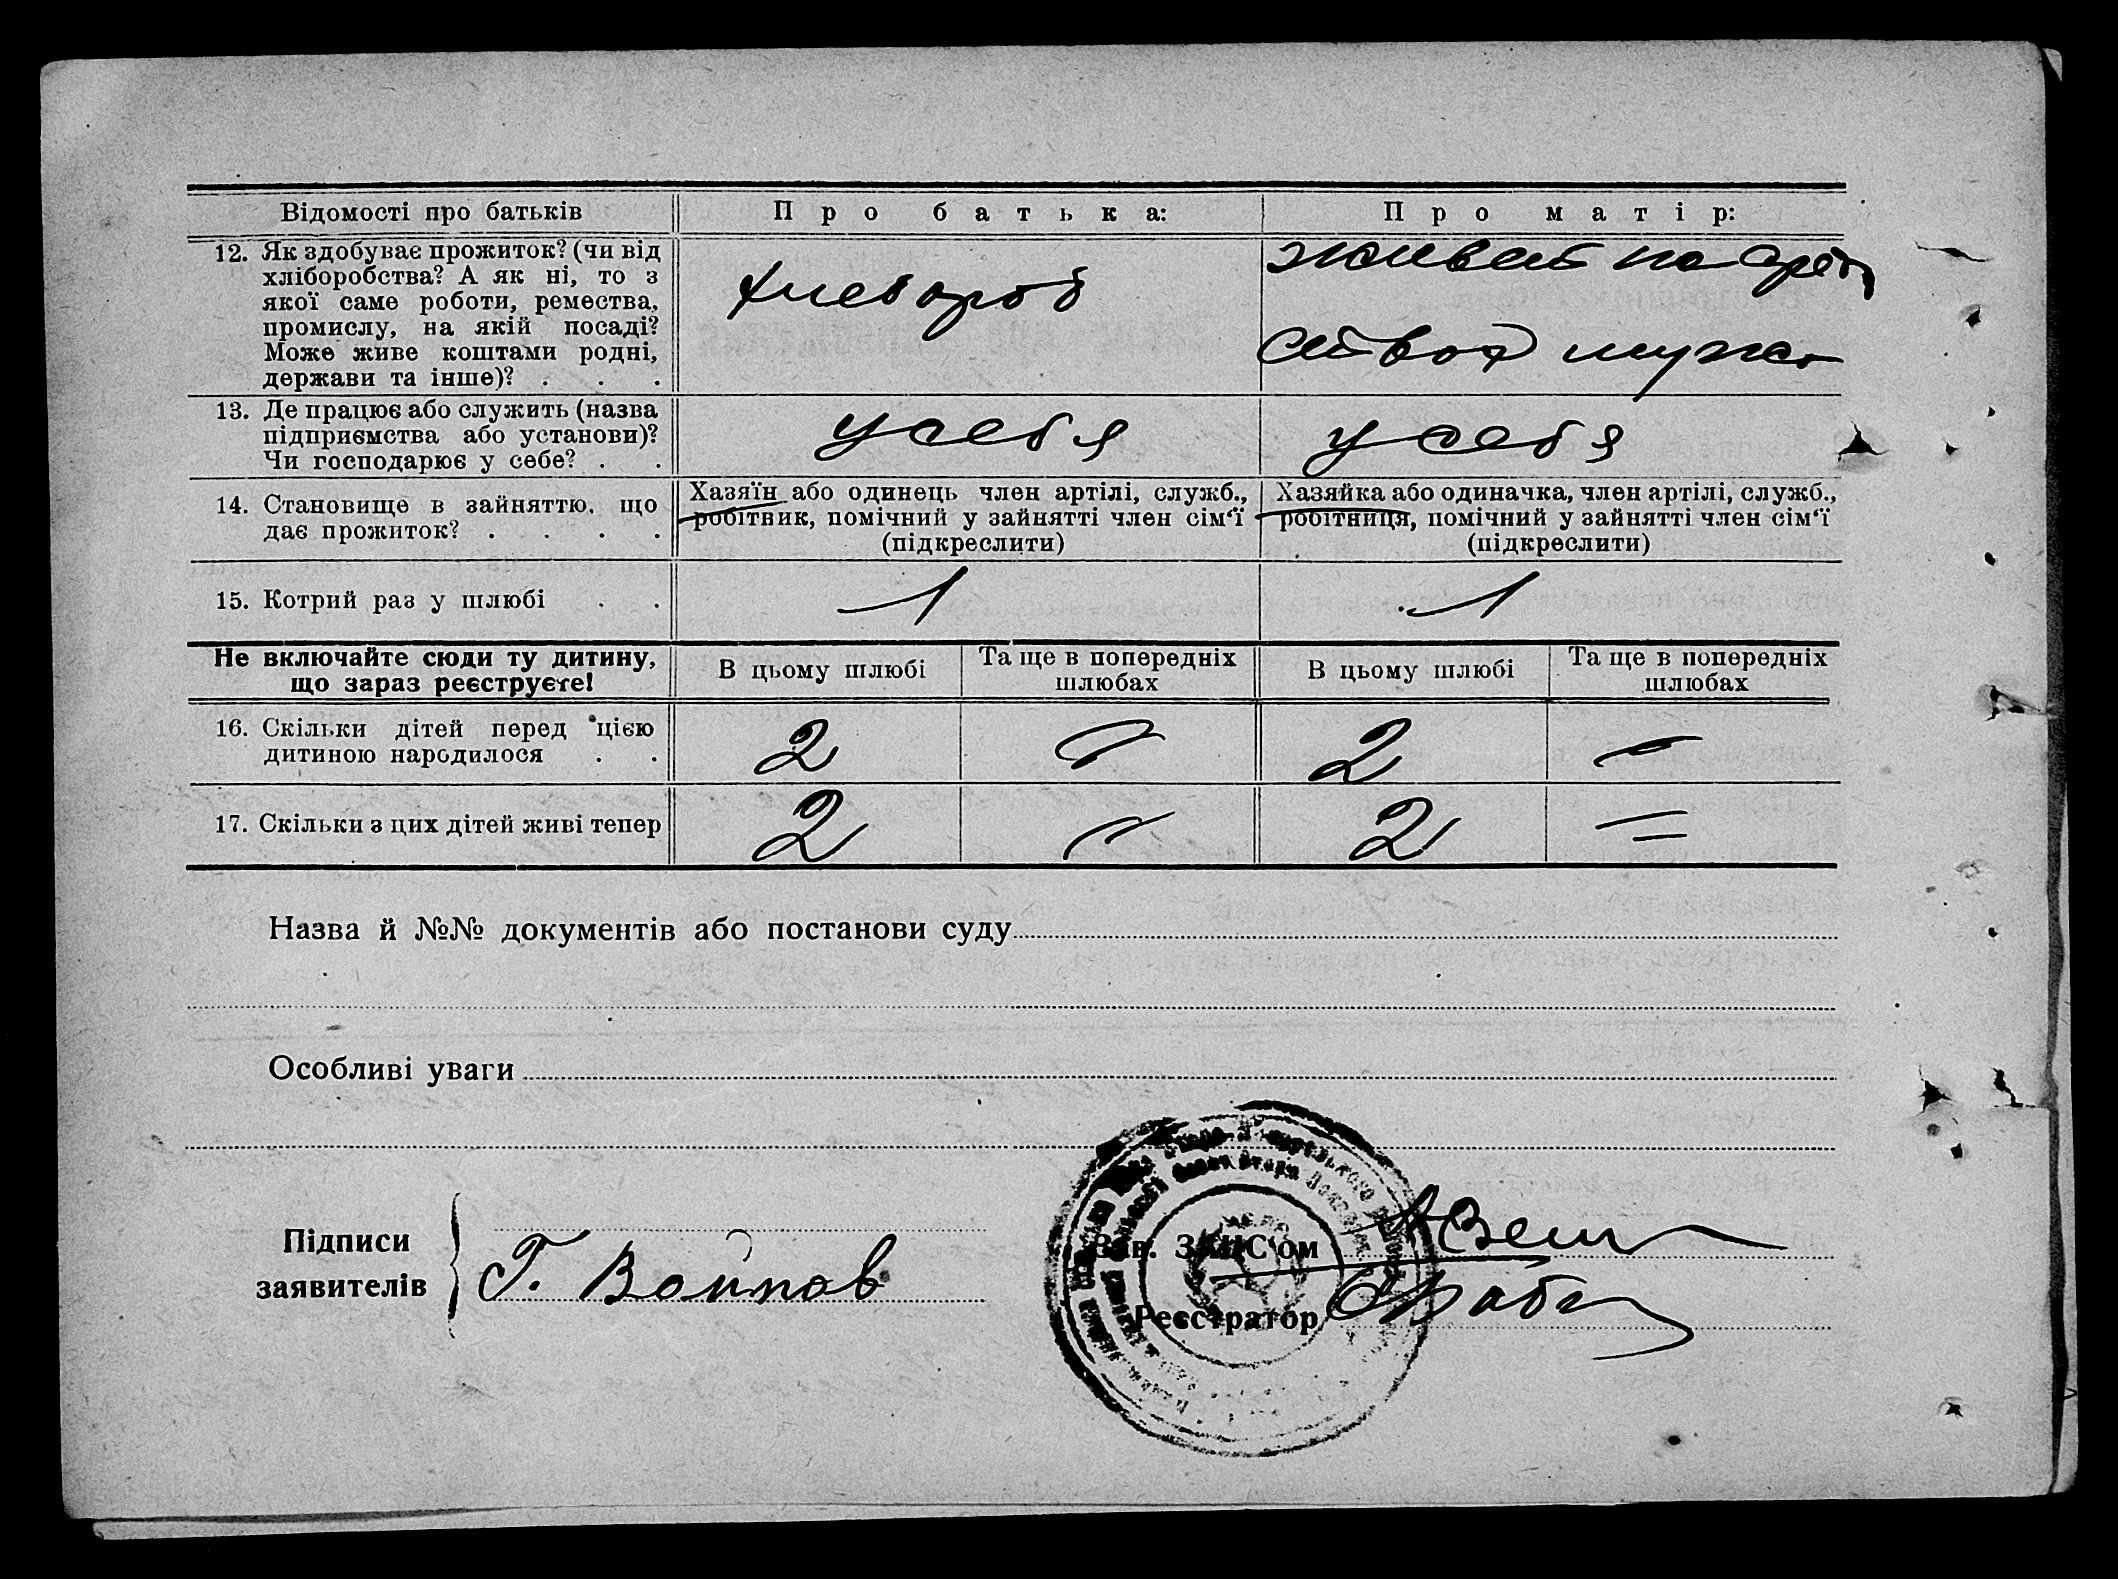 Відомості про батьків
Про батька:
Про матір:
12. Як здобуває прожиток? (чи від
хліборобства? А як ні, то з
якої саме роботи, ремества,
промислу, на якій посаді?
Може живе коштами родні,
держави та інше)? . . .
хлебороб
живет на сред
ства мужа
13. Де працює або служить (назва
підприємства або установи)?
Чи господарює у себе? . .
у себя
у себя
14. Становище в зайняттю, що
дає прожиток? . . . .
Хазяїн або одинець член артілі, служб.,
робітник, помічний у зайнятті член сім‘ї
(підкреслити)
Хазяйка або одиначка, член артілі, служб.,
робітниця, помічний у зайнятті член сім‘ї
(підкреслити)
15. Котрий раз у шлюбі . .
1
1
Не включайте сюди ту дитину,
що зараз реєструєте!
В цьому шлюбі
Та ще в попередніх
шлюбах
В цьому шлюбі
Та ще в попередніх
шлюбах
16. Скільки дітей перед цією
дитиною народилося . .
2
2
17. Скільки з цих дітей живі тепер
2
2
Назва й №№ документів або постанови суду
Особливі уваги
Підписи
заявителів
Г. Войнов
Зав. ЗАГС‘ом
Реєстратор